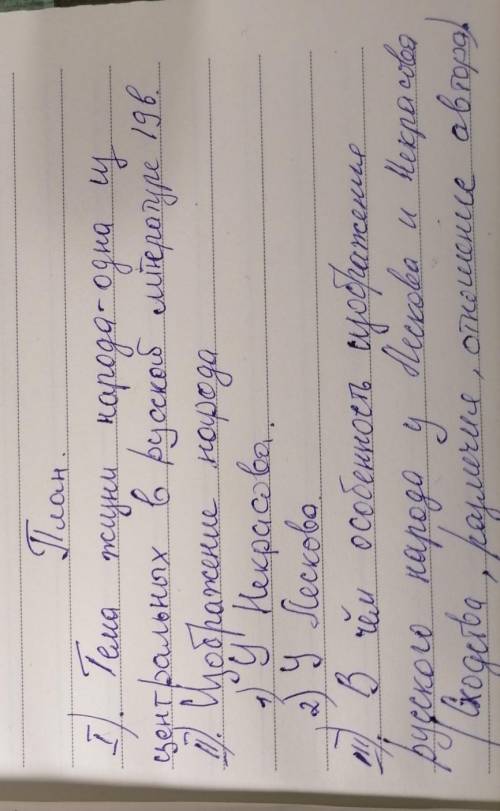 План.
I). Тема жизни народа - одна из
центральных в русской литературе 19в.
II). Изображение народа
1) У Некрасова.
2) У Лескова.
III) В чём особенность изображения
русского народа у Лескова и Некрасова
(Сходства, различия, отношение автора).